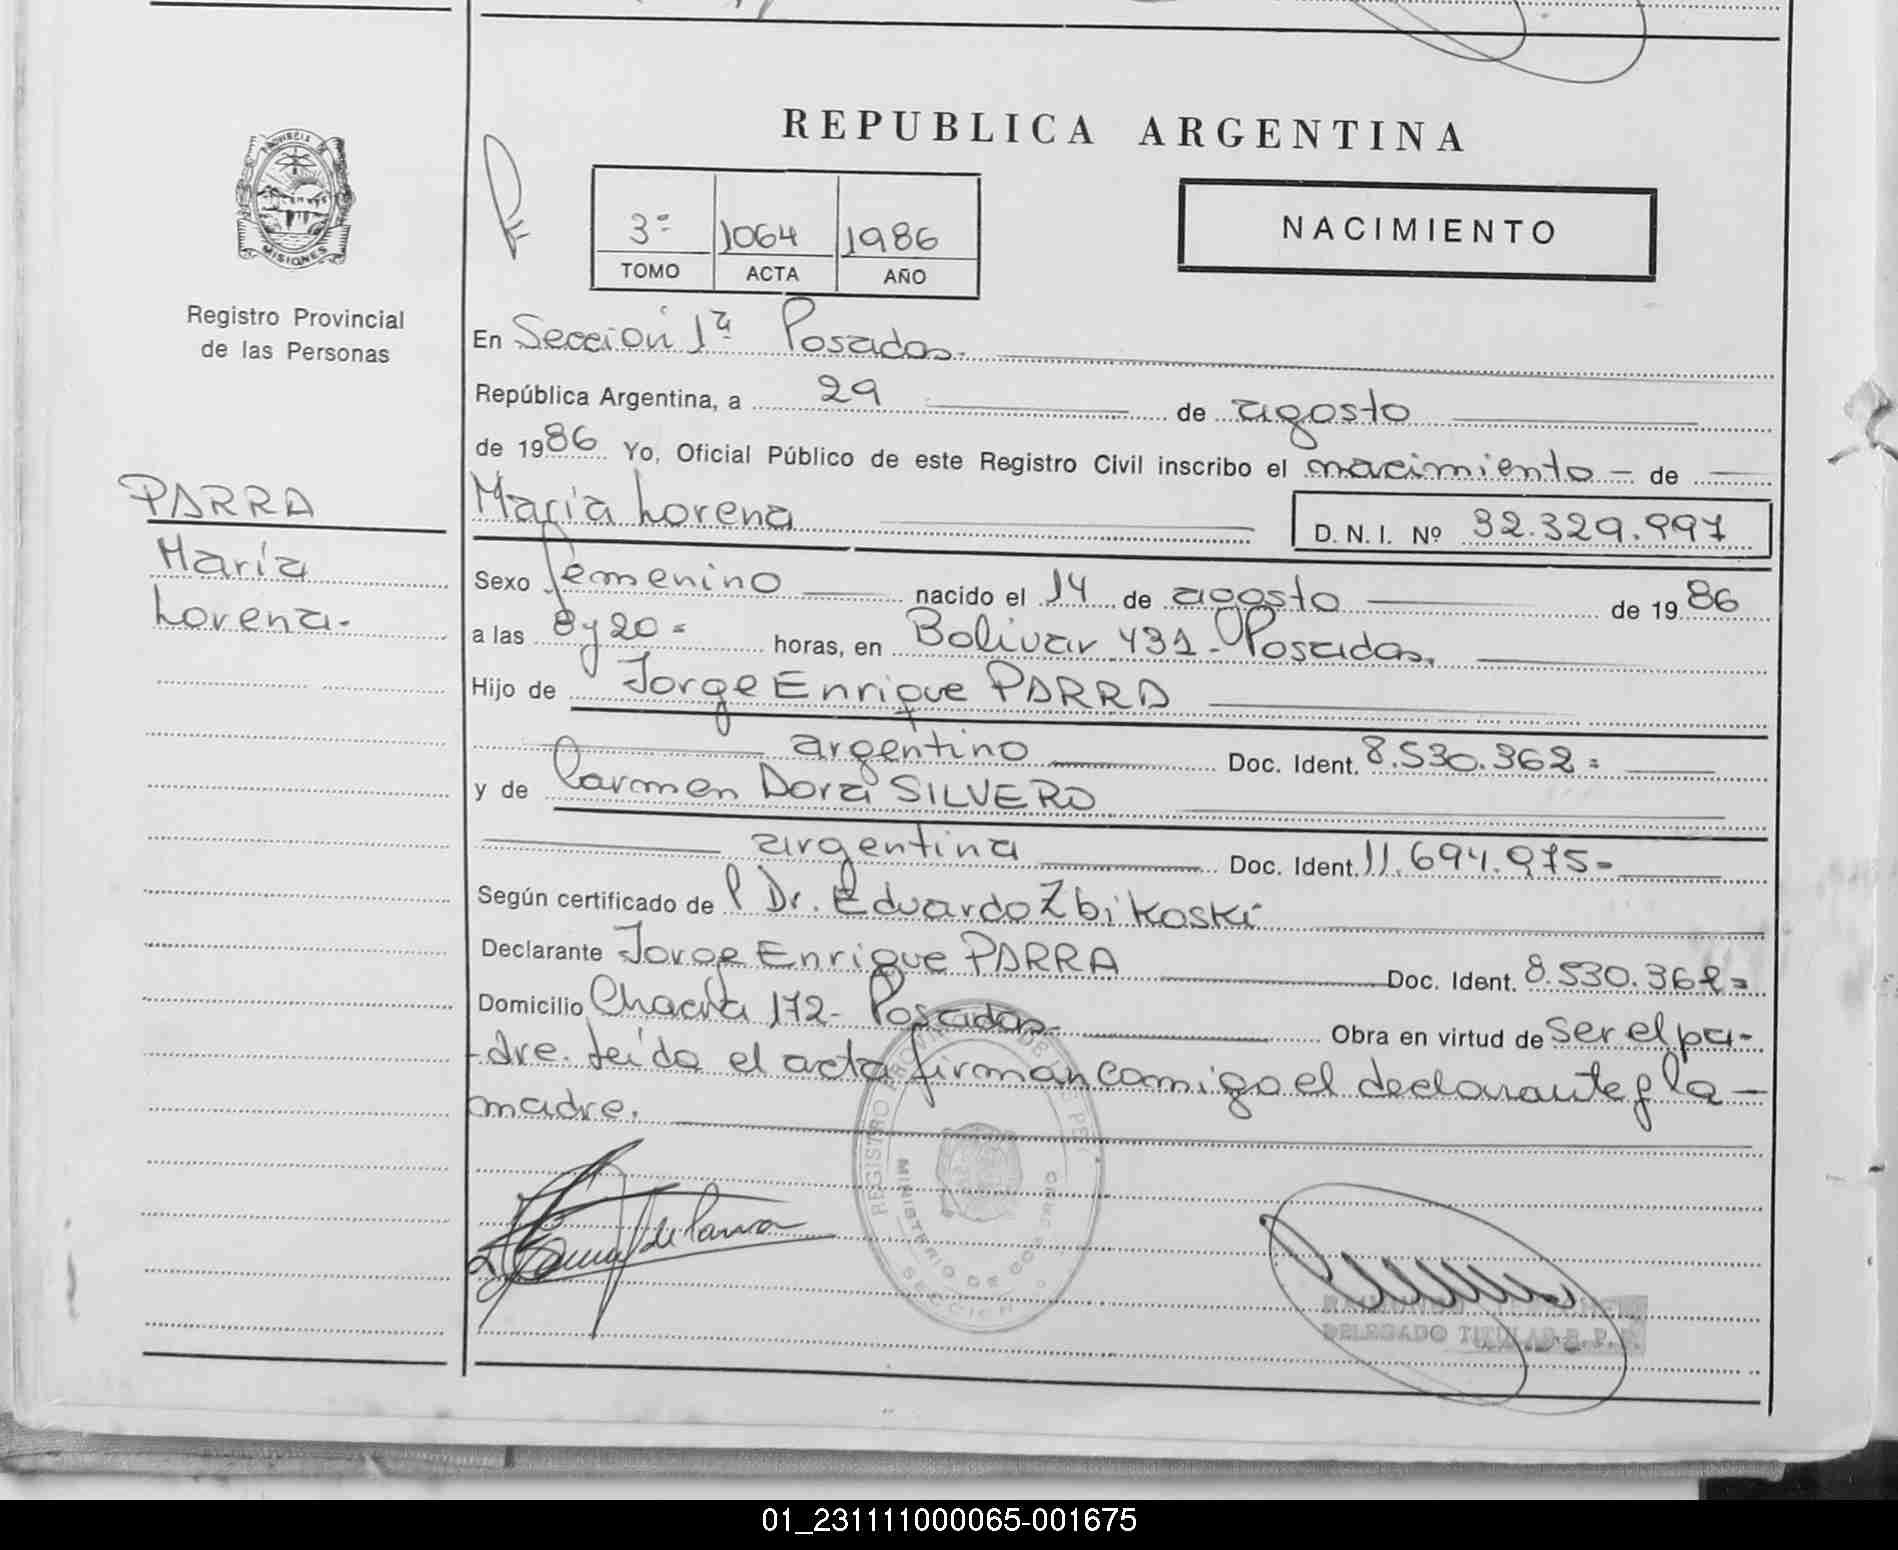 REPUBLICA ARGENTINA
PROVINCIA DE
MISIONES
Registro Provincial
de las Personas
3º 1064 1986
TOMO ACTA AÑO
NACIMIENTO
En Sección 1ª Posadas.
República Argentina, a 29 de agosto
de 1986 Yo, Oficial Público de este Registro Civil inscribo el nacimiento - de
PARRA
María
Lorena.
María Lorena
D. N. I. Nº 32.329.997
Sexo femenino nacido el 14 de agosto de 1986
a las 8 y 20 = horas, en Bolivar 431 - Posadas.
Hijo de Jorge Enrique PARRA
argentino Doc. Ident. 8.530.362 =
y de Carmen Dora SILVERO
argentina Doc. Ident. 11.694.975 =
Según certificado de l Dr. Eduardo Zbikoski
Declarante Jorge Enrique PARRA Doc. Ident. 8.530.362 =
Domicilio Chacra 172 - Posadas. Obra en virtud de ser el pa-
-dre. Leída el acta firman conmigo el declarante y la -
madre.
de Parra
REGISTRO PROVINCIAL DE LAS PER
MINISTERIO DE GOBIERNO
SECCION
DELEGADO TITULAR R.P.P.
01_231111000065-001675